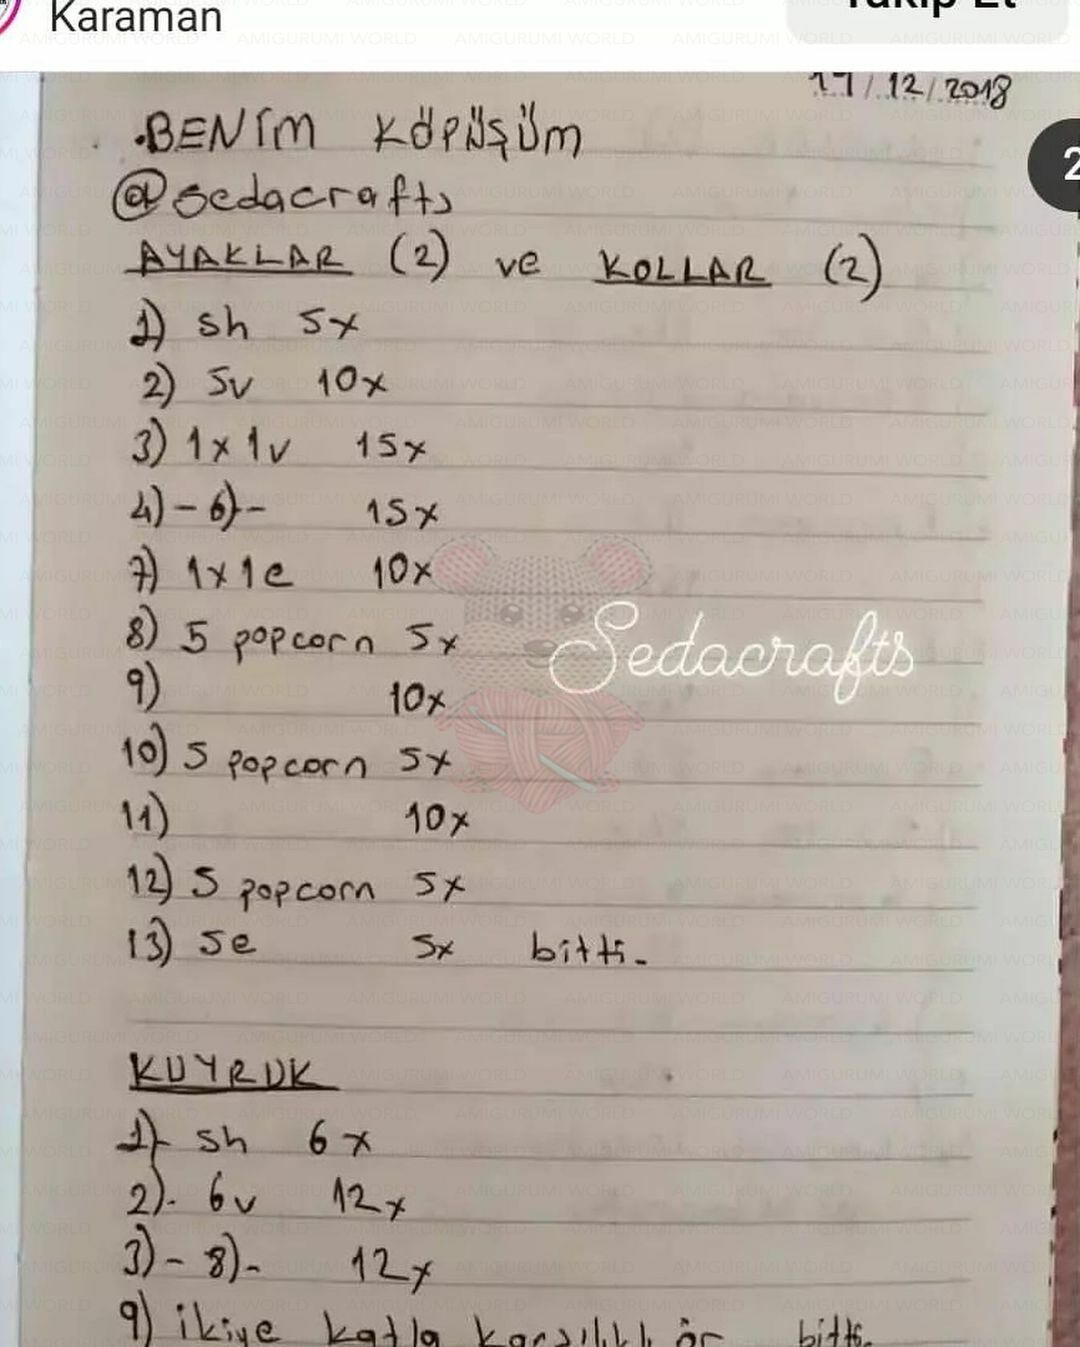 Karaman
Takip Et
17/12/2018
.BENİM KÖPÜŞÜM
@sedacrafts
AYAKLAR (2) ve KOLLAR (2)
1) sh 5x
2) 5v 10x
3) 1x1v 15x
4)-6)- 15x
7) 1x1e 10x
8) 5 popcorn 5x
Sedacrafts
9) 10x
10) 5 popcorn 5x
11) 10x
12) 5 popcorn 5x
13) 5e 5x bitti.
KUYRUK
1)- sh 6x
2)- 6v 12x
3)-8)- 12x
9) ikiye katla karşılıklı ör bitti.
AMIGURUMI WORLD
2